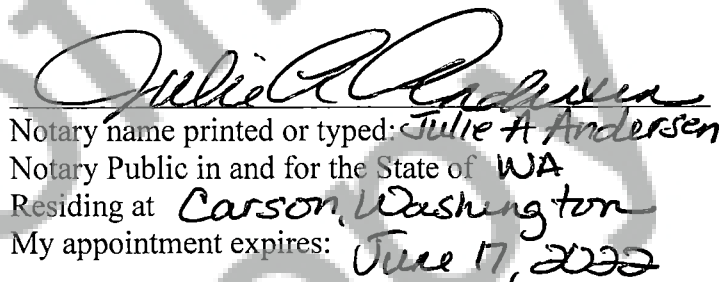 Julie A Andersen
Notary name printed or typed: Julie A Andersen
Notary Public in and for the State of WA
Residing at Carson, Washington
My appointment expires: June 17, 2022